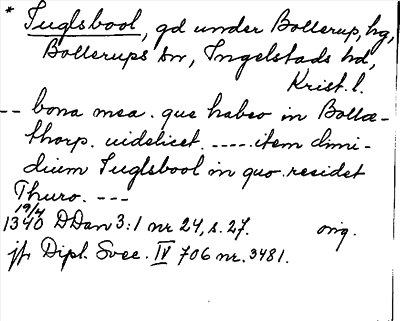 * Fuglsbool, gd under Bollerup, hg,
Bollerups sn, Ingelstads hd,
Krist. l.
-- bona mea . que habeo in Bollæ-
thorp. uidelicet. ---- item dimi-
dium Fuglsbool in quo residet
Thuro. ---
19/4
1340 DDan 3:1 nr 24, s. 27. orig.
jfr Dipl. Svec. IV 706 nr. 3481.